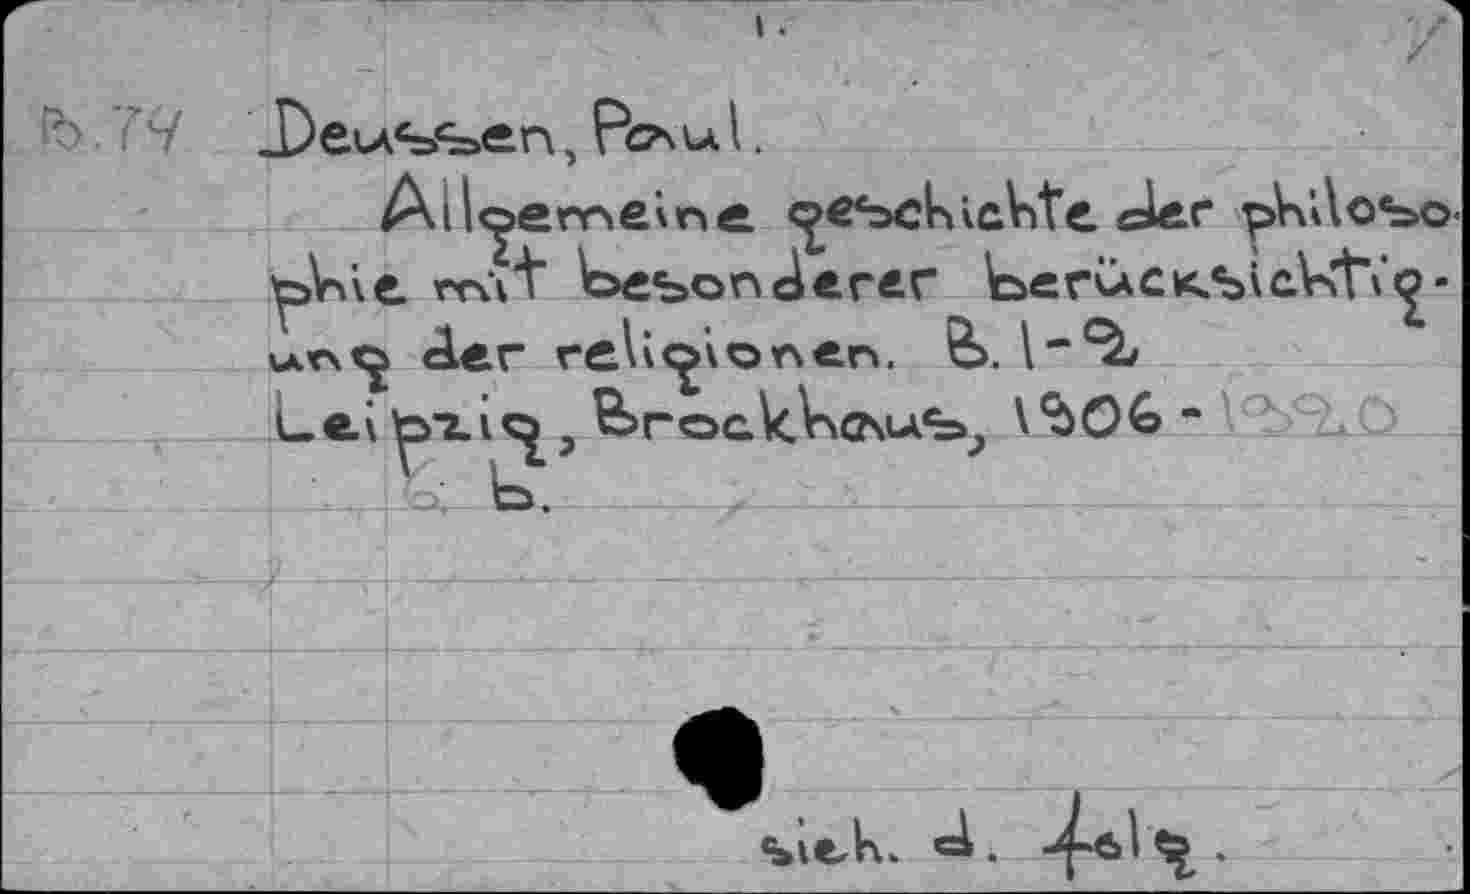 1.
B.74 Deussen, Paul.
Allgemeine geschichte der philoso-
phie mit besonderer berücksichtig-
ung der religionen. B. 1-2
Leipzig, Brockhaus, 1906-1920
b.
sieh. d. folg.